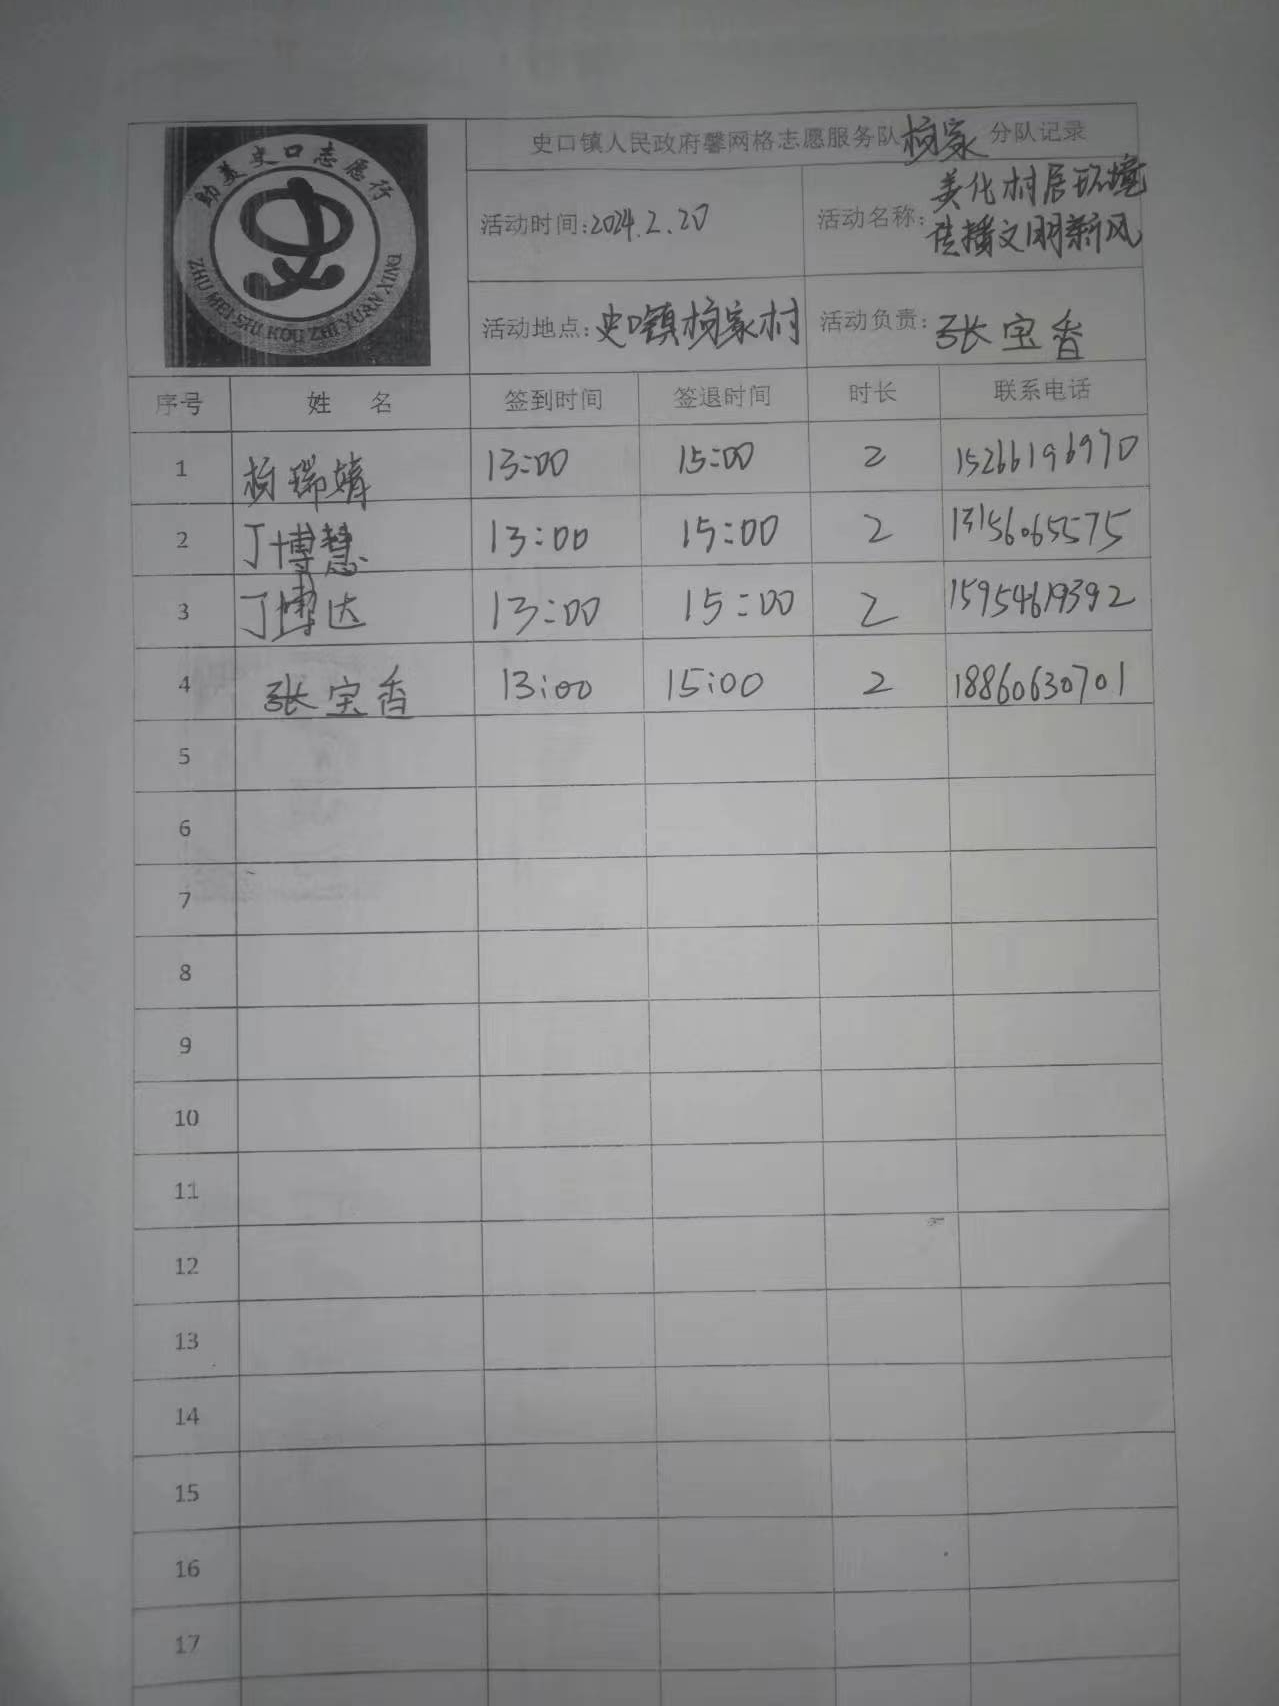 助美史口志愿行
史
ZHU MEI SHI KOU ZHI YUAN XING
史口镇人民政府馨网格志愿服务队杨家 分队记录
活动时间:2024.2.20
活动名称:美化村居环境
传播文明新风
活动地点:史口镇杨家村
活动负责:张宝香
序号 姓 名 签到时间 签退时间 时长 联系电话
1 杨瑞婧 13:00 15:00 2 15266196970
2 丁博慧 13:00 15:00 2 13156065575
3 丁博达 13:00 15:00 2 15954619392
4 张宝香 13:00 15:00 2 18860630701
5
6
7
8
9
10
11
12
13
14
15
16
17